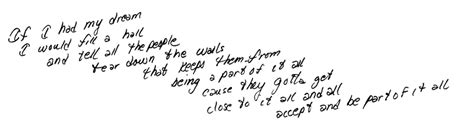 If I had my dream
I would fill a hall
and tell all the people
tear down the walls
that keeps them from
being a part of it all
cause they gotta get
close to it all and all
accept and be part of it all